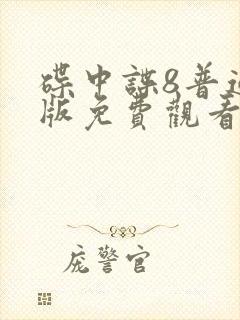 碟中諜8普通
版免費觀看
庞警官